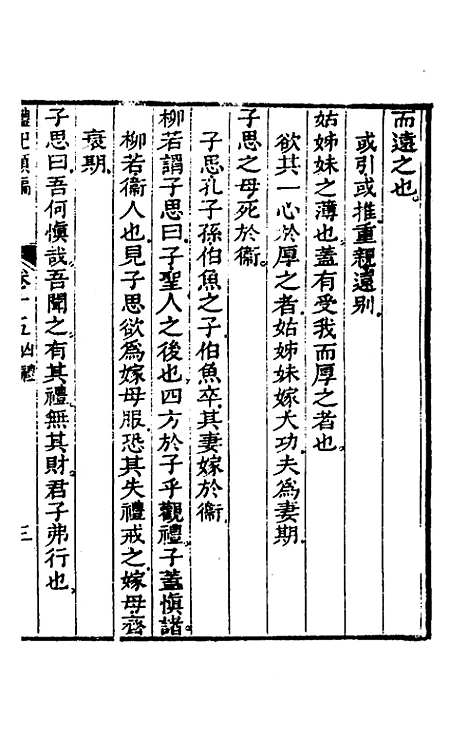 而遠之也
或引或推重親遠別
姑姊妹之薄也蓋有受我而厚之者也
欲其一心於厚之者姑姊妹嫁大功夫爲妻期
子思之母死於衞
子思孔子孫伯魚之子伯魚卒其妻嫁於衞
柳若謂子思曰子聖人之後也四方於子乎觀禮子蓋愼諸
柳若衞人也見子思欲爲嫁母服恐其失禮戒之嫁母齊
衰期
子思曰吾何愼哉吾聞之有其禮無其財君子弗行也
禮記類編 卷十五 凶禮 三